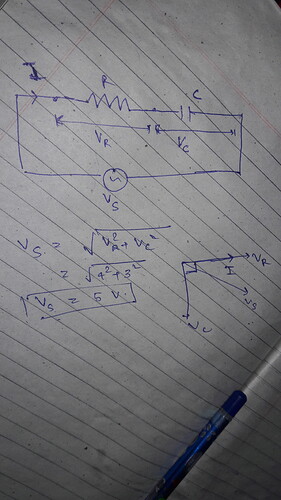 I
R
C
V_R
V_C
V_S
V_S = √(V_R² + V_C²)
= √(4² + 3²)
V_S = 5 V.
V_R
I
V_S
V_C